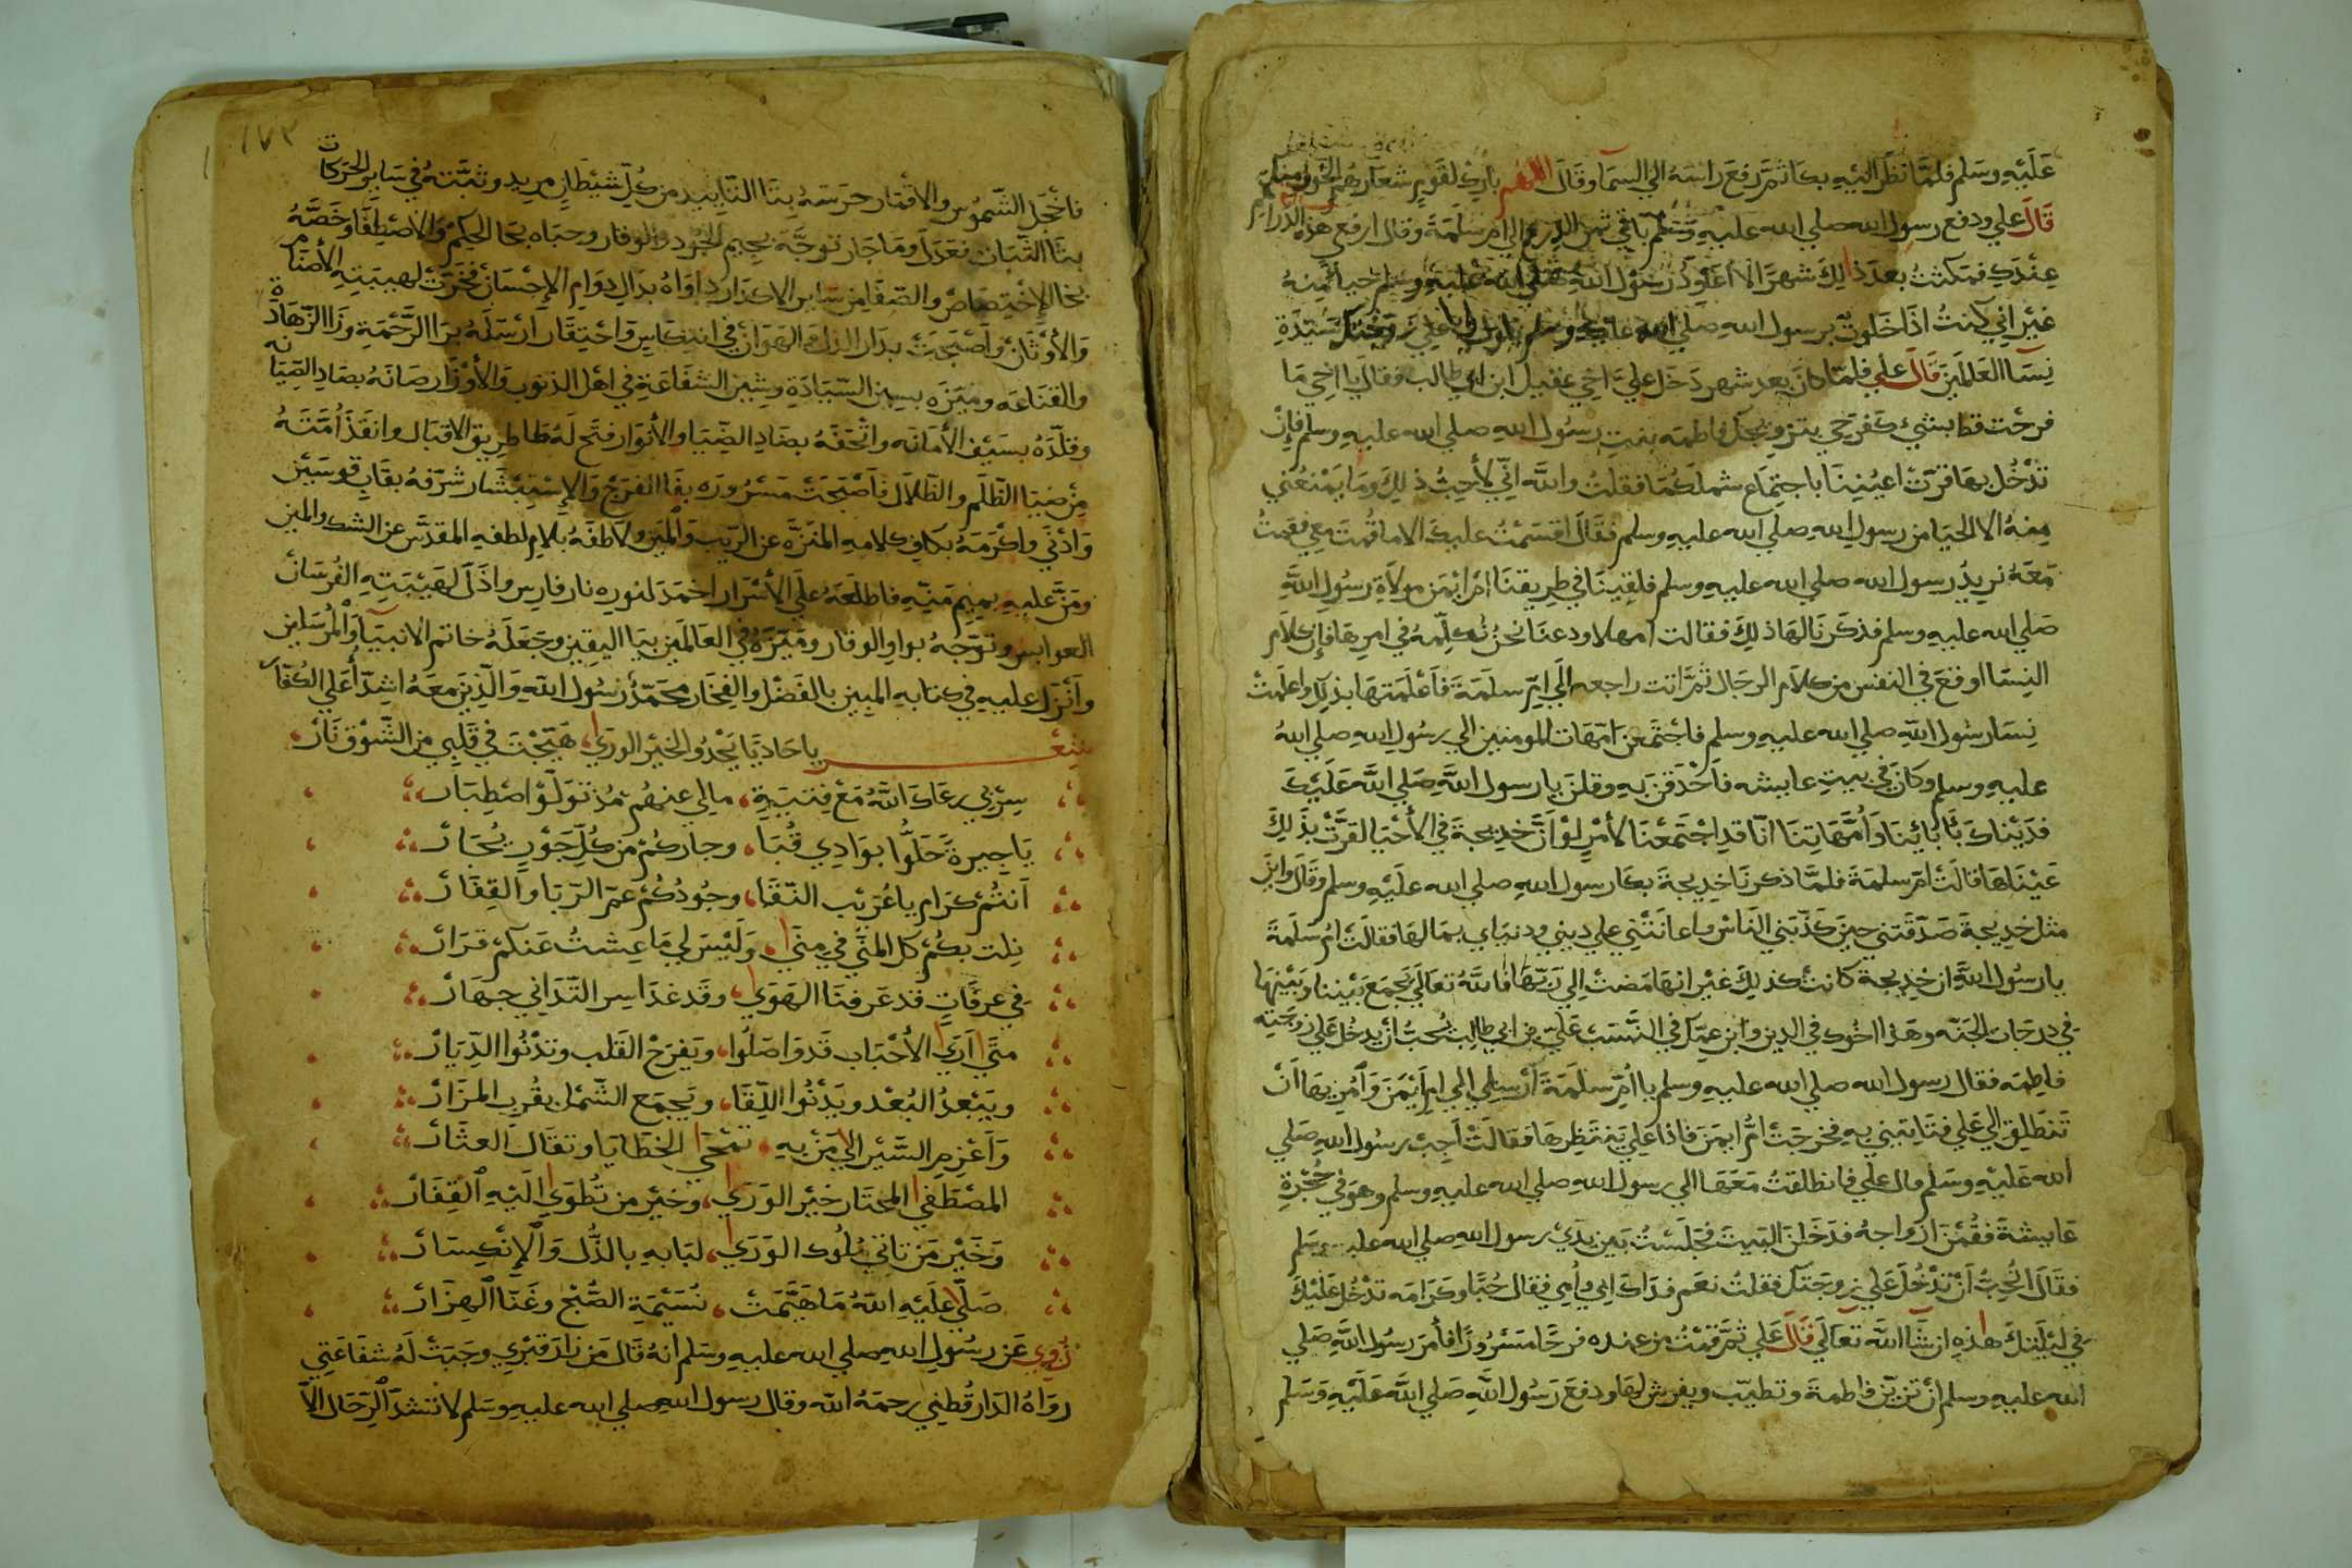 عَلَيْهِ وسَلم فلمَّا نظَر اليْهِ بكَا ثمَّ رفعَ راسَهُ الي السمآ وقَالَ اللهم بارك لقَومٍ شعَارهُم الخوف منك
قَالَ علي ودفع رسول الله صلي الله عليهِ وسَلم باقي ثمن الدرع الي ام سَلمَةَ وقال ارفعي هذه الدراهم
عِنْدَكِ فمكثتُ بعدَ ذالِكَ شهرًا لا اُعَاوِدُ رسُوْل اللهِ صلي الله عليهِ وسلم حياً مِنهُ
غيْرَ اني كنتُ اذَا خَلوتُ برسول الله صلي الله عليه وسلم يقول يا علي زوجتك سَيّدَةِ
نِسَآ العَالمَينَ قَالَ علي فلمَّا كانَ بعد شهر دَخَل عليَّ اخي عقيل ابن ابي طالب فقالَ يا اخي مَا
فرحْت قط بشيْ كفرَحي بتزويجكَ فاطمه بنتِ رسُول اللهِ صلي الله عليهِ وسلم فإنْ
تدْخُل بهَا قرّتْ اعيُننِا باجتِمَاع شملكُمَا فقلتُ واللهِ انّي لأحِبُّ ذٰلِكَ ومَا يَمْنَعُني
مِنهُ الا الحيَا من رسولِ اللهِ صلي الله عليهِ وسلم فقَالَ اقسَمْتُ عليكَ الا ما قُمتَ مَعِي فقمتُ
مَعَهُ نريدُ رسول الله صلي الله عليه وسلم فلقِيَنَا في طريقنَا امّ ايْمَن مولاَة رسُولِ اللهِ
صَلي الله عليهِ وسلم فذكرنا لهَا ذلِكَ فقالت امهلا ودعنَا نحنُ نُكلِّمهُ في امرِهَا فإن كلاَم
النِسَا اوقعَ في النفس من كلام الرجال ثمَّ اتت راجعه اِلَي امِّ سلمَةَ فأعْلَمَتهَا بذٰلِكَ واعلمَتْ
نِسَا رسُولِ اللهِ صلي الله عليهِ وسلم فاجْتمَعنَ امّهَات المومنينَ الي رسُولِ اللهِ صلي اللهُ
عليهِ وسلم وكانَ في بيتِ عايشه فأحْدَقنَ بهِ وقلنَ يا رسول اللهِ صَلي اللهُ عَلَيْكَ
فدَيْناكَ بآبَائِنَا وَاُمَّهَاتِنَا انّا قدِ اجْتمعْنَا لأمْرٍ لوْ اَنَّ خدِيجة في الأحْيَا لقرَّتْ بذٰلِكَ
عَيْنَاهَا قالَتْ امّ سلمَة فلمَّا ذكرنَا خدِيجةَ بكَا رسول اللهِ صلي الله علَيْهِ وسلم وقَال واين
مثل خدِيجة صَدّقَتني حِينَ كذّبَني النَاسُ واعانَتْني علي دِيني ودنيَاي بمَالهَا فقالت امّ سَلمَة
يا رسُول اللهِ ان خدِيجة كانتْ كذلِكَ غيْرَ انهَا مَضتْ اِلي رَبّهَا فاللهُ تعَالَي يَجْمَعَ بَيْننا وبَيْنهَا
في درجَات الجَنّه وهَذا اخُوكَ في الدين وابن عمّكَ في النّسَب عَليّ بن ابي طَالِب يُحبُّ انْ يدخُل عَلي زوجَتِه
فاطِمه فقال رسول الله صلي الله عليهِ وسلم يا امّ سلمَةَ ارسِلي الي امّ اَيْمَنَ وَامُرِيهَا انْ
تنطلِق الي عَلي فتاتيني بهِ فخرجَتْ امُّ ايمَنَ فاذا عَليّ يَنتَظِرهَا فقالَتْ اَجِبْ رسُولَ اللهِ صَلي
الله عَليْهِ وسَلم قال علي فانطلقتُ مَعَهَا الي رسول اللهِ صلي الله عليهِ وسلم وهوَ في حُجْرَةِ
عَايشةَ فقُمْنَ ازوَاجهُ فدَخلنَ البَيتَ فجَلسْتُ بَينَ يدَيْ رسول اللهِ صلي الله عليه وسَلم
فقَالَ اتُحِبُّ اَنْ تدْخُلَ عَلي زوجَتكَ فقلتُ نعَم فدَاكَ ابي واُمي فقال حُبًّا وكرَامَه تدْخُل عَليْكَ
في ليْلتِكَ هذِهِ انشَآ اللهَ تعَالَي قَالَ عَلي ثمَّ قمْتُ من عندِه فرِحًا مَسْرُورًا فأمَر رسُول اللهِ صَلي
الله عليهِ وسلم انْ تزيَّن فاطمةَ وتطيبّ ويفرش لهَا ودفعَ رَسُول اللهِ صَلي اللهُ عَلَيْهِ وَسَلم
١٧٣
فأخجَل الشّمُوسَ والأقمَار حرَسَهُ بتَا التّاييد من كُلِّ شيْطانٍ مريدٍ وثبَّتهُ في سَايرِ الحَركَات
بثَا الثّبَات فعَدَلَ ومَا جَار توجَّهَ بجيم الجُود والوقار وحبَاه بحَا الحِكم والاصْطِفَا وخَصَّهُ
بخَا الإخْتِصَاصْ والصّفَا من سَاير الاكدَار دَاوَاهُ بدَالِ دوَام الإحْسَان فخرَتْ لهيْبَتِهِ الأصْنَام
وَالأوثَانْ واَصْبَحَتْ بدَار الذل والهَوَانْ في انتِكَاسٍ وَاحْتِقَار ارْسَلَهُ برَا الرَّحْمَةِ وزَا الزّهَادَة
والقنَاعَه ومَيّزَه بسِين السّيَادَةِ وشِين الشفَاعَةِ في اهْل الذنوبِ وَالأوْزَار صَانَهُ بصَادِ الصّيَانه
وقلّدَهُ بسَيْف الأمَانَه واتْحَفَهُ بضَادِ الضّيَا والأنوَار فتحَ لَهُ طَا طريق الاقبَال وانقَذَ اُمّتَهُ
مِنْ ضيَا الظّلَم والظّلاَل فأصْبَحَتْ مَسْرُورَه بفَا الفرَجْ وَالإسْتِبْشَار شرّفهُ بقَابِ قوسَيْنِ
وَادْنَي واكْرَمَهُ بكافِ كلامهِ المنَزّه عنِ الرّيَب وَالمَيَن ولاَطفَهُ بلاَمِ لطفهِ المقدّس عن الشك والمين
ومَنَّ عليهِ بميم مَنّهِ فاطلَعَهُ علَي الأسْرَار اخمَدَ لنورِه نار فارِس واذَلّ لهَيْبَتِهِ الفُرسَانْ
العوابس وتوّجهُ بواوِ الوقار ومَيّزَهُ في العَالمَين بيَا اليقِين وجَعَلَهُ خاتم الانبيَآ والمُرسَلين
وأنْزَلَ عليهِ في كتابهِ المبِين بالفَضْل والفِخَار محَمّدٌ رسُولُ اللهِ وَالّذِينَ معَهُ اشِدّآ عَلَي الكُفّار
شعْر يا حَادِيًا يَحْدُو الخيْرِ الورَي، هَيّجْتَ في قَلبي منَ الشّوْق نَارْ،
سِرْ بي رعَاكَ اللهُ مَعْ فِتيَةٍ، مالي عنهُم مُذ توَلّوْا اصْطِبَار
يَا جِيرةً حَلُّوا بوَادِي قُبَا، وجَاركُم من كُلِّ جَوْرٍ يُجَارْ
اَنتُمْ كرَام يا عُرَيْب النّقَا، وجُودُكُمْ عمّ الرّبَا والقِفَارْ
نِلت بكُمْ كلّ المنَي في مِنَي، ولَيْسَ لي مَا عِشتُ عَنكُم قرَارْ
في عرفَاتٍ قد عَرفنَا الهَوَي، وقد غدَا سِر التّدَاني جهَارْ
متَي اَرَي الأحْبَاب قَد وَاصَلُوا، ويَفرَحْ القَلب وتدْنُوا الدِّيَارْ
ويَبْعدُ البُعْد ويَدْنُوا اللِّقَا، ويَجمَع الشّمْل بقُربِ المزَارْ
وَاَعْزِم السَّيْر الي مَنْ بهِ، تمْحَي الخطَايَا وتقَال العثَارْ
المصْطَفي المخْتَار خيْر الوَرَي، وخيْر من تُطْوَي الَيْهِ القِفَارْ
وَخَيْر مَن تاتي مُلُوك الوَرَي، لبَابهِ بالذُّل وَالإنكِسَارْ
صَلّي عَلَيْهِ اللهُ مَا هَيَّمَتْ، نُسَيْمَةِ الصُّبْح وغَنّا الهزَارْ
رُوِيَ عَن رسُولِ اللهِ صلي الله عليهِ وسَلم انهُ قالَ مَن زَارَ قبْري وجَبَتْ لَهُ شفَاعَتي
روَاهُ الدّارقُطني رحمَهُ اللهُ وقال رسول اللهِ صلي الله عليهِ وسَلم لا تشدّ الرِّحَال الاّ